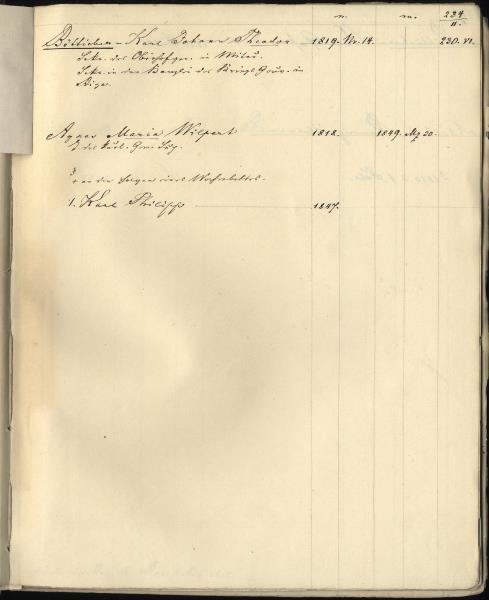 n. m. 234
II.
Bötticher – Karl Johann Theodor 1819. Nv. 14. 230. VI.
Sekr. des Oberhofger. in Mitau.
Sekr. in der Kanzlei des Kriegs Gouv. in
Riga.
Agnes Maria Wilpert 1818. 1849. Mz 20.
T. des Kurl. Gouv.
† an den Folgen eines Wochenbettes.
1. Karl Philipp 1847.